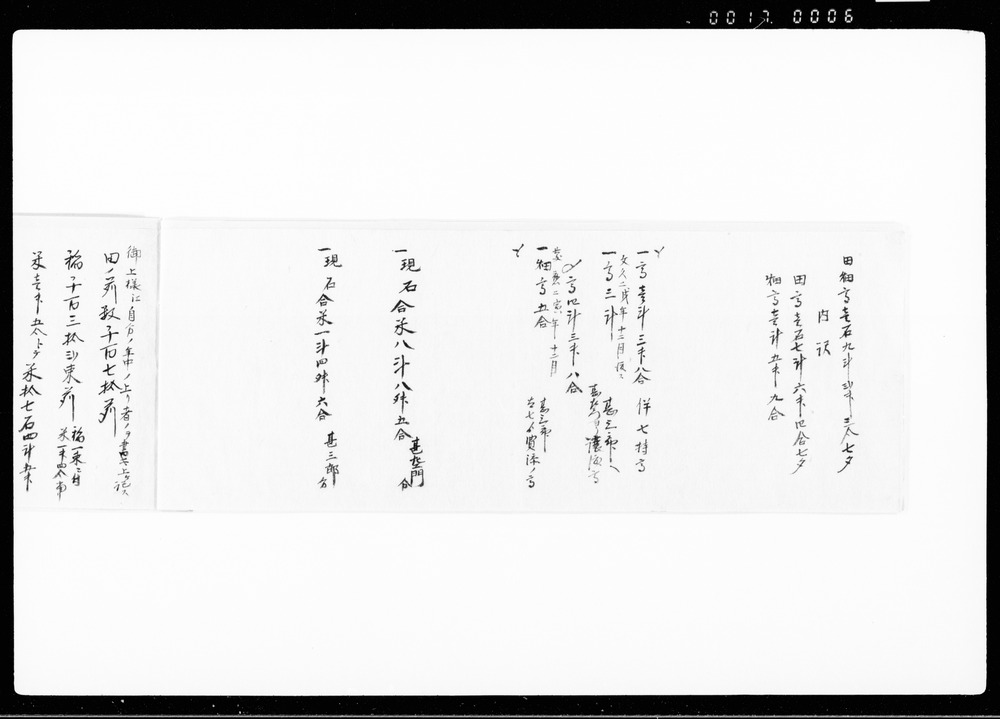 0017 0006
田畑高壱石九斗弐升三合七夕
内訳
田高壱石七斗六升四合七夕
畑高壱斗五升九合
一高壱斗三升八合 伴七持高
文久二戌年十二月
一高三斗 甚三郎へ
甚左衛門ヨリ譲渡高
〆高四斗三升八合
慶応二寅年十二月
一畑高五合 甚三郎
一現石合米八斗八升五合 甚左衛門分
一現石合米一斗四升六合 甚三郎分
御上様江自分ノ年中ノ上リ者ノヲ書上ケ記ス
田ノ苅数千百七拾苅
稲千百三拾弐束苅 稲一束ニ付 米一升四合
米壱升五合トシテ 米拾七石四斗五升